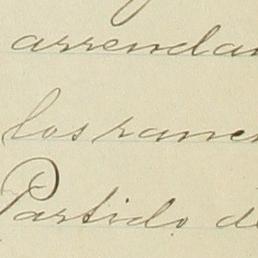 arrendar
los ranch
Partido de